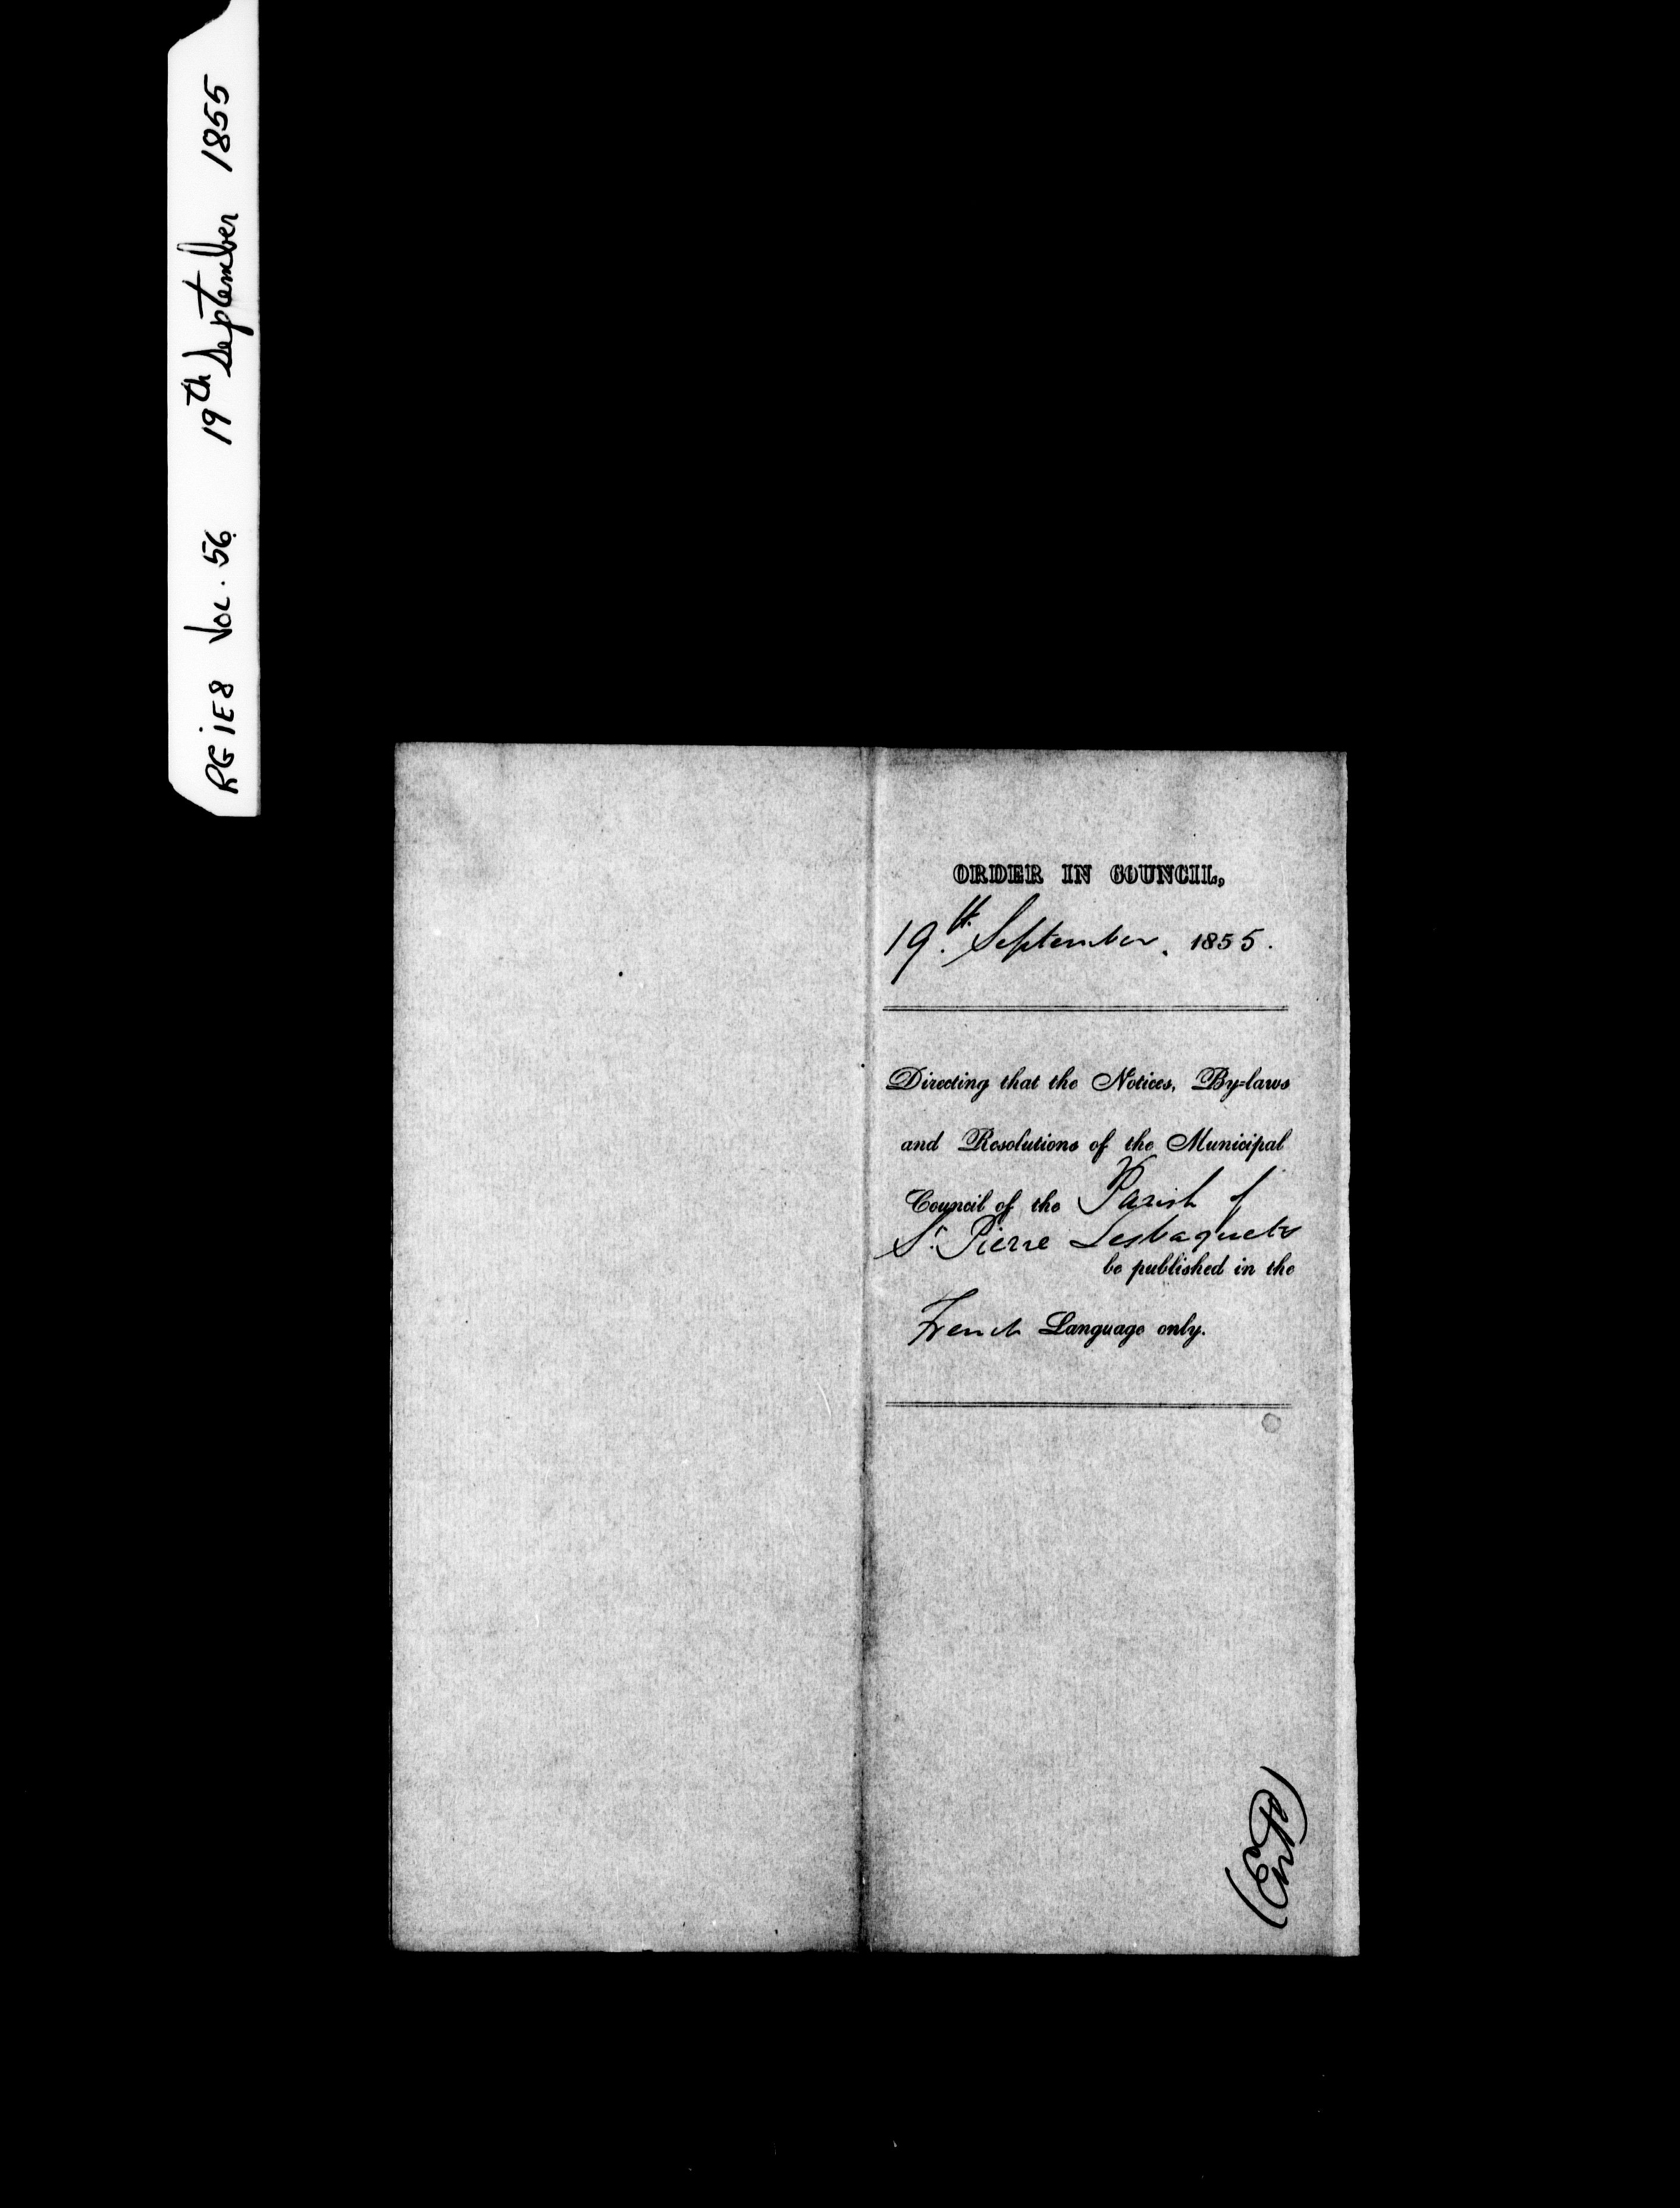 RG 1E8 Vol. 56 19th September 1855
ORDER IN COUNCIL,
19th. September. 1855.
Directing that the Notices, By=laws
and Resolutions of the Municipal
Council of the Parish of
St. Pierre Lesbaquets
be published in the
French Language only.